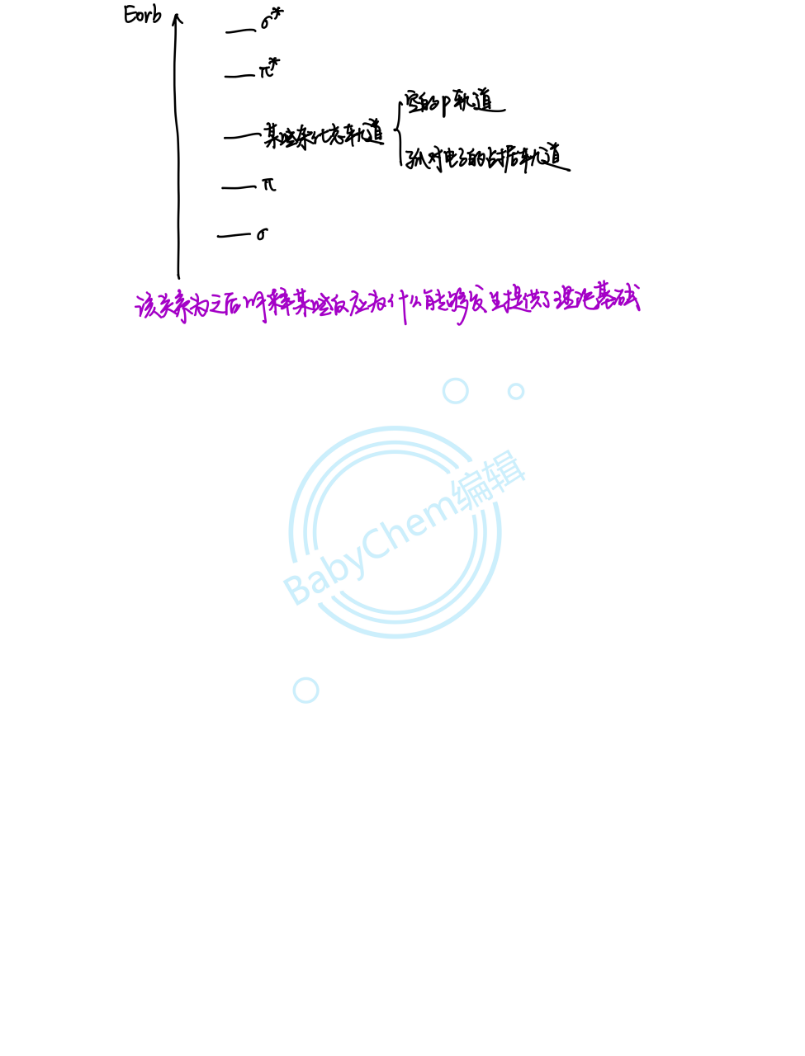 Eorb
σ*
π*
某些杂化态轨道
空的p轨道
孤对电子的占据轨道
π
σ
该关系为之后解释某些反应为什么能够发生提供了理论基础
BabyChem编辑